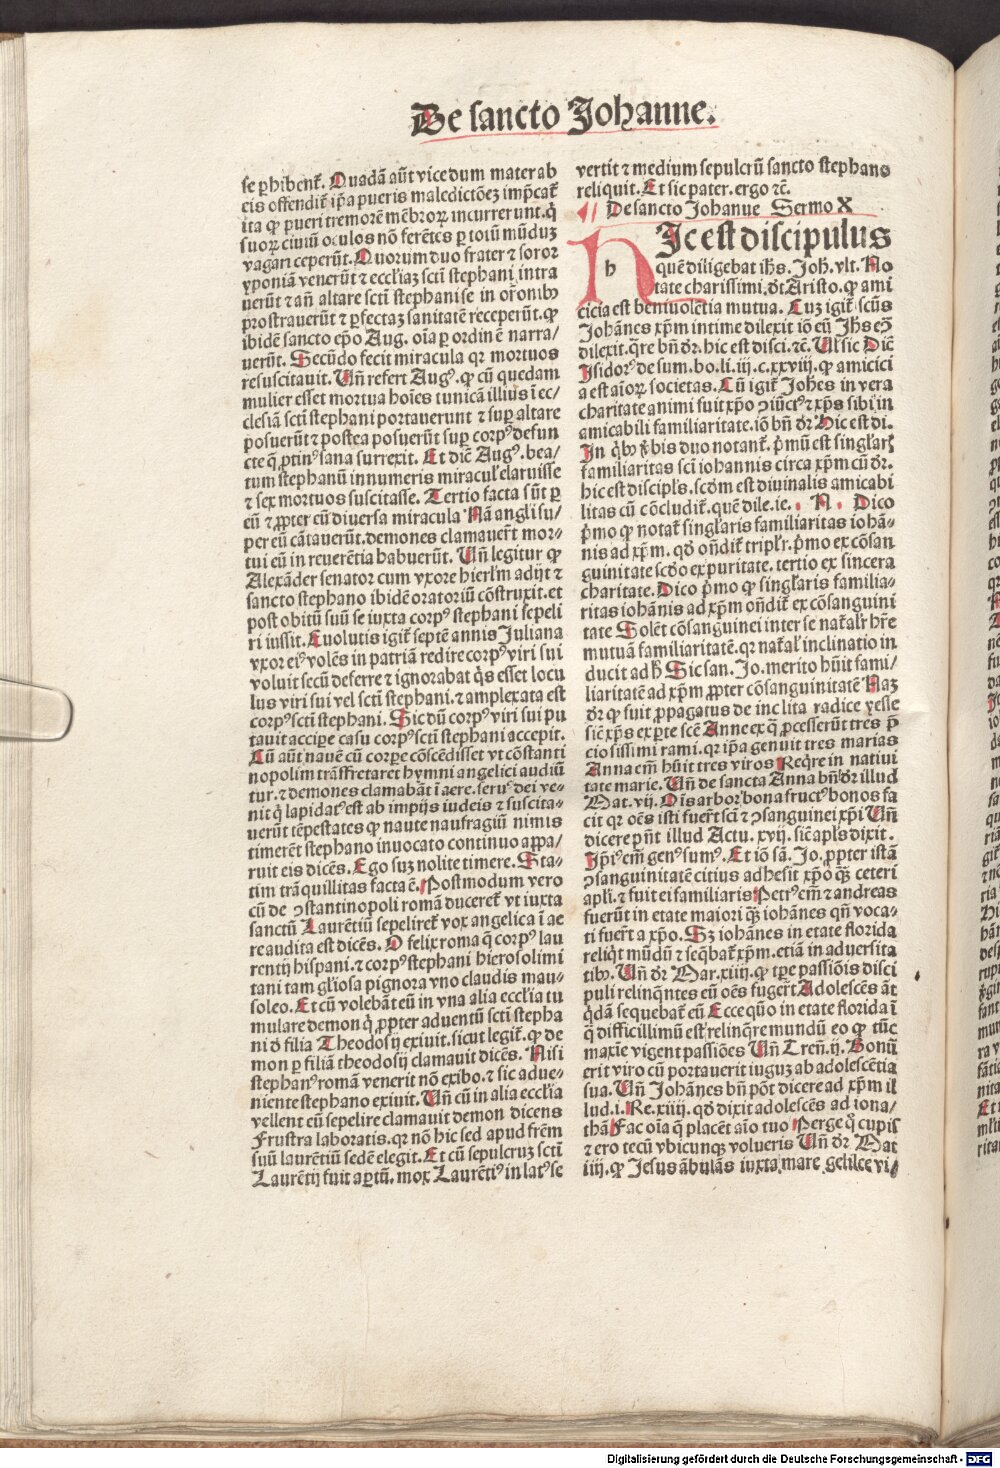 De sancto Johanne.
se ꝑhibent̄. Quadā aūt vice dum mater ab
eis offendit̄ ip̄a pueris maledictōeʒ imp̄cat̄
ita ꝙ pueri tremorē mēbroꝝ incurrerunt. q̄
suoꝝ ciuiū oculos nō ferētes ꝑ totū mūduʒ
vagari ceperūt. Quorum duo frater ⁊ soror
yponiā venerūt ⁊ eccl̄iaʒ scti stephani intra
uerūt ⁊ an̄ altare scti stephani se in or̄onibꝰ
prostrauerūt ⁊ ꝑfectaʒ sanitatē receperūt. ꝙ
ibidē sancto ep̄o Aug. oīa ꝑ ordinē narra/
uerūt. Secūdo fecit miracula qꝛ mortuos
resuscitauit. Un̄ refert Augꝰ. ꝙ cū quedam
mulier esset mortua hoīes tunicā illius ī ec/
clesiā scti stephani portauerunt ⁊ suꝑ altare
posuerūt ⁊ postea posuerūt suꝑ corpꝰ defun
cte q̄ ꝓtinꝰ sana surrexit. Et dic̄ Augꝰ. bea/
tum stephanū innumeris miracul̓ claruisse
⁊ sex mortuos suscitasse. Tertio facta sūt ꝑ
eū ⁊ ꝓpter eū diuersa miracula Nā angl̓i su/
per eū cātauerūt. demones clamauer̄t mor-
tui eū in reuerētia habuerūt. Un̄ legitur ꝙ
Alexāder senator cum vxore hierl̓m adijt ⁊
sancto stephano ibidē oratoriū cōstruxit. et
post obitū suū se iuxta corpꝰ stephani sepeli
ri iussit. Euolutis igit̄ septē annis Juliana
vxor eiꝰ volēs in patriā redire corpꝰ viri sui
voluit secū deferre ⁊ ignorabat q̄s esset locu
lus viri sui vel scti stephani. ⁊ amplexata est
corpꝰ scti stephani. Sic dū corpꝰ viri sui pu
tauit accipe casu corpꝰ scti stephani accepit.
Cū aūt nauē cū corpe cōscēdisset vt cōstanti
nopolim trāsfretaret hymni angelici audiū
tur. ⁊ demones clamabāt ī aere. seruꝰ dei ve-
nit q̄ lapidatꝰ est ab impijs iudeis ⁊ suscita-
uerūt tēpestates ꝙ naute naufragiū nimis
timerēt stephano inuocato continuo appa/
ruit eis dicēs. Ego suʒ nolite timere. Sta-
tim trāquillitas facta ē. Postmodum vero
cū de ꝯstantinopoli romā duceret̄ vt iuxta
sanctū Laurētiū sepeliret̄ vox angelica ī ae
re audita est dicēs. O felix roma q̄ corpꝰ lau
rentij hispani. ⁊ corpꝰ stephani hierosolimi
tani tam gl̓iosa pignora vno claudis mau-
soleo. Et cū volebāt eū in vna alia eccl̓ia tu
mulare demon q̄ ꝓpter aduentū scti stepha
ni d̄ filia Theodosij exiuit. sicut legit̄. ꝙ de
mon ꝑ filiā theodosij clamauit dicēs. Nisi
stephanꝰ romā venerit nō exibo. ⁊ sic adue-
niente stephano exiuit. Un̄ cū in alia eccl̓ia
vellent eū sepelire clamauit demon dicens
Frustra laboratis. qꝛ nō hic sed apud fr̄em
suū laurētiū sedē elegit. Et cū sepulcruʒ scti
Laurētij fuit aꝑtū. mox Laurētiꝰ in latꝰ se
vertit ⁊ medium sepulcrū sancto stephano
reliquit. Et sic pater. ergo ⁊c̄.
De sancto Johanne Sermo X
h
Ic est discipulus
quē diligebat ih̄s. Joh. vlt. No
tate charissimi. d̄t Aristo. ꝙ ami
cicia est beniuolētia mutua. Cuʒ igit̄ scūs
Johānes xp̄m intime dilexit iō eū Jh̄s eꝫ
dilexit. q̄re bn̄ dꝛ. hic est disci. ⁊c̄. Ul̓ sic Dic̄
Isidorꝰ de sum. bo. li. iij. c. xxviij. ꝙ amicici
a est aīoꝝ societas. Cū igit̄ Joh̄es in vera
charitate animi fuit xp̄o ꝯiūctꝰ ⁊ xp̄s sibi in
amicabili familiaritate. iō bn̄ dꝛ Hic est di.
In q̄bꝰ v̄bis duo notant̄. p̄mū est singl̓aris
familiaritas sci iohannis circa xp̄m cū dꝛ.
hic est discipl̓s. scd̄m est diuinalis amicabi
litas cū cōcludit̄. quē dile. ie. N. Dico
p̄mo ꝙ notat̄ singl̓aris familiaritas iohā-
nis ad xp̄m. qd̄ on̄dit̄ tripl̓r. p̄mo ex cōsan
guinitate scd̄o ex puritate. tertio ex sincera
charitate. Dico p̄mo ꝙ singl̓aris familia-
ritas iohānis ad xp̄m on̄dit̄ ex cōsanguini
tate Solēt cōsanguinei inter se nat̄al̓r h̄re
mutuā familiaritatē. qꝛ nat̄al̓ inclinatio in
ducit ad h̄ Sic san. Jo. merito hūit fami/
liaritatē ad xp̄m ꝓpter cōsanguinitatē Naʒ
dꝛ ꝙ fuit ꝓpagatus de inclita radice yesse
sic̄ xp̄s ex ꝑte scē Anne ex q̄ ꝓcesserūt tres p̄
ciosissimi rami. qꝛ ip̄a genuit tres marias
Anna em̄ hūit tres viros Req̄re in natiui
tate marie. Un̄ de sancta Anna bn̄ dꝛ illud
Mat. vij. Oīs arbor bona fructꝰ bonos fa
cit qꝛ oēs isti fuer̄t sci ⁊ ꝯsanguinei xp̄i Un̄
dicere p̄nt illud Actu. xvij. sic̄ apl̓s dixit.
Ip̄iꝰ em̄ genꝰ sumꝰ. Et iō sā. Jo. ꝓpter istā
ꝯsanguinitatē citius adhesit xp̄o q̄ꝫ ceteri
apl̓i. ⁊ fuit ei familiaris Petrꝰ em̄ ⁊ andreas
fuerūt in etate maiori q̄ꝫ iohānes qn̄ voca-
ti fuer̄t a xp̄o. Sʒ iohānes in etate florida
reliq̄t mūdū ⁊ seq̄bat̄ xp̄m. etiā in aduersita
tibꝰ. Un̄ dꝛ Mar. xiiij. ꝙ tp̄e passiōis disci
puli relinq̄ntes eū oēs fuger̄t Adolescēs āt
q̄dā sequebat̄ eū Ecce quō in etate florida ī
q̄ difficillimū est relinq̄re mundū eo ꝙ tūc
maxīe vigent passiōes Un̄ Tren̄. iij. Bonū
erit viro cū portauerit iuguʒ ab adolescētia
sua. Un̄ Johānes bn̄ pōt dicere ad xp̄m il
lud. i. Re. xiiij. qd̄ dixit adolescēs ad iona/
thā Fac oīa q̄ placēt aīo tuo Perge q̄ cupis
⁊ ero tecū vbicunqꝫ volueris Un̄ dꝛ Mat
iiij. ꝙ Jesus ābulās iuxta mare galilee vi/
Digitalisierung gefördert durch die Deutsche Forschungsgemeinschaft - DFG